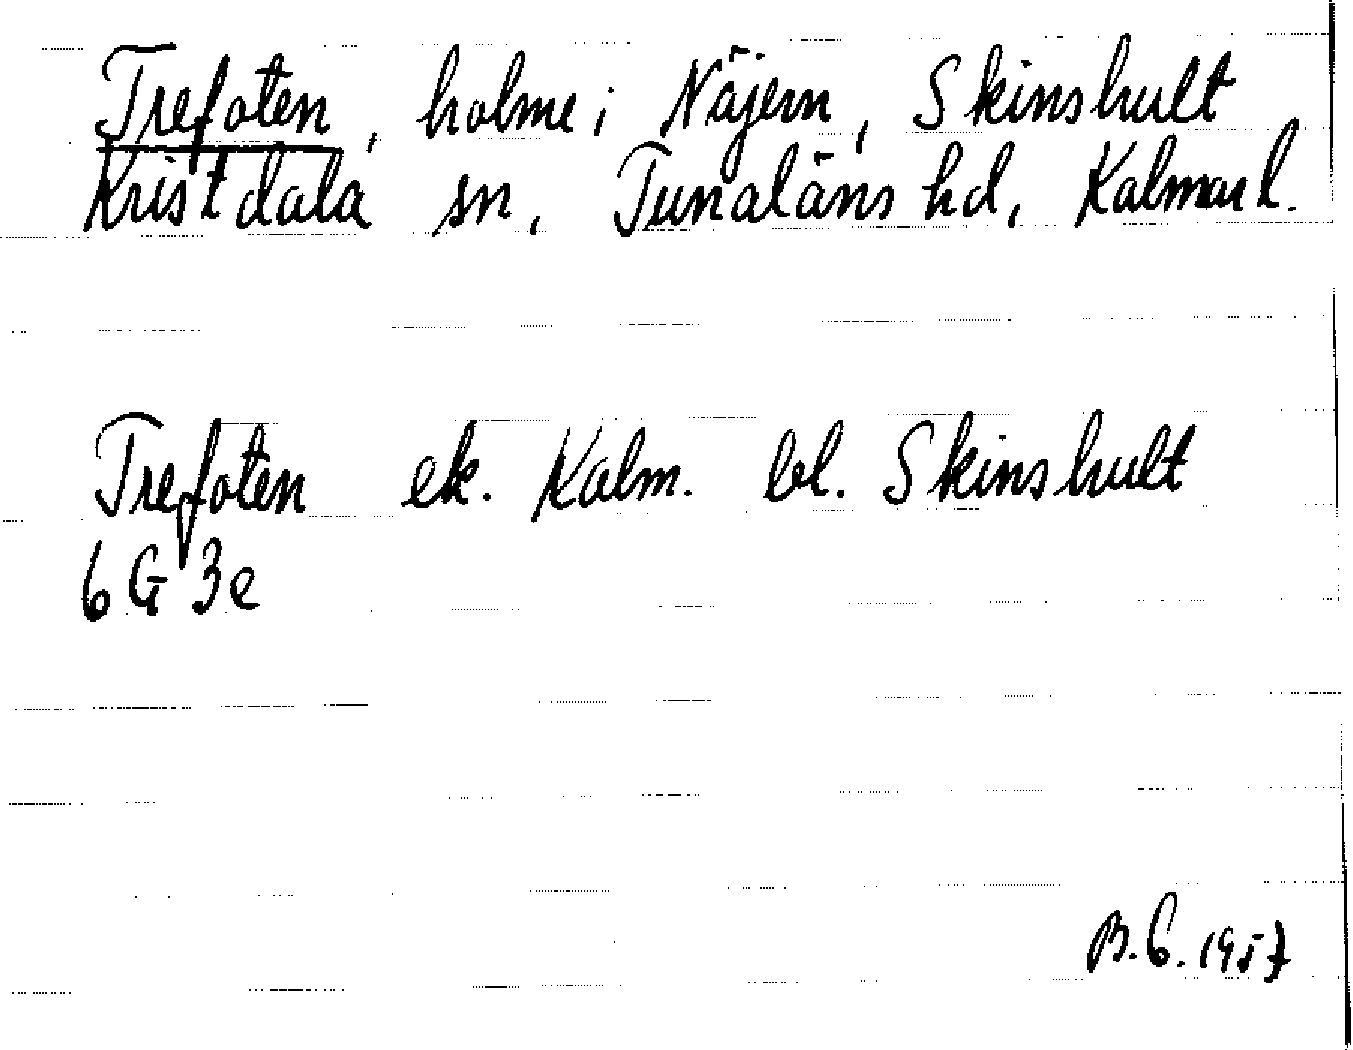 Trefoten, holme i Näjern, Skinshult
Kristdala sn, Tunaläns hd, Kalmar l.
Trefoten ek. Kalm. bl. Skinshult
6G 3e
B.G. 1957